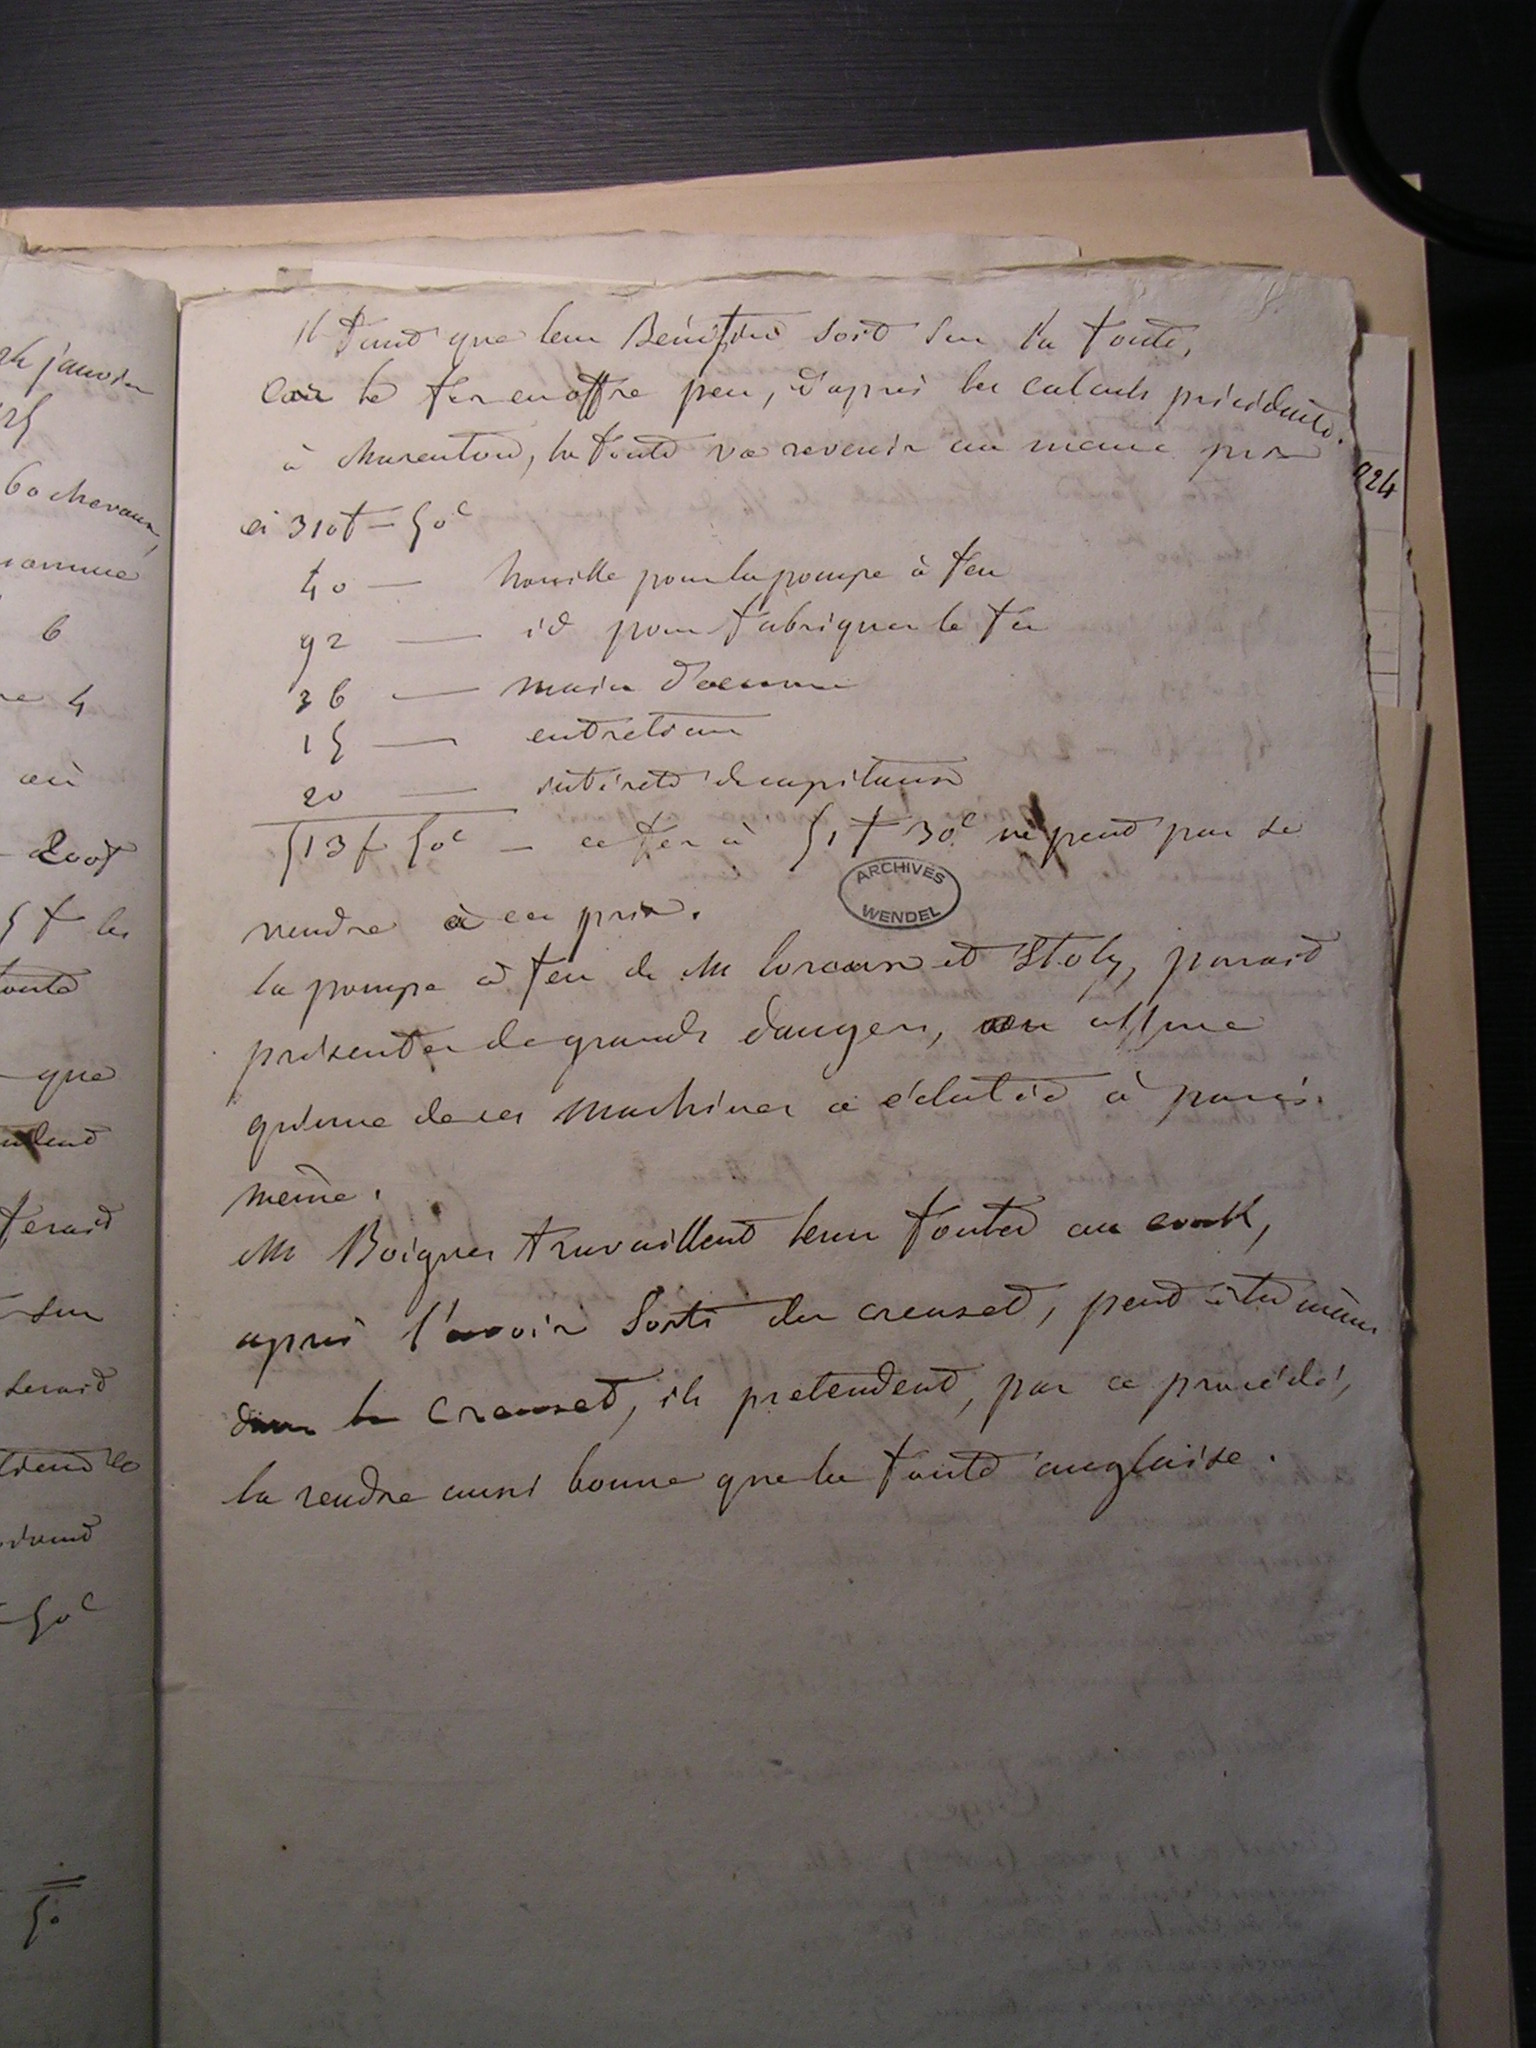 24 janvier
60 chevaux,
6
4
où
200f
5 f les
fonte
que
ferait
sur
serait
50c
50
224
il faut que leur Bénéfice soit sur la fonte,
car le fer en offre peu, d'après les calculs précédents.
à charenton, la fonte va revenir au meme prix
ci 310f — 50c
40 — houille pour la pompe à feu
92 — id pour fabriquer le fer
36 — main d'oeuvre
15 — entretien
20 — intérets de capitaux
513f 50c — ce fer à 51f 30c ne peut pas se
vendre à ce prix.
ARCHIVES
WENDEL
la pompe à feu de M et Stoly, parait
présenter de grands dangers, on assure
qu'une de ces machines a éclatée à paris
même.
M Boigues travaillent leur fonte au cook,
après l'avoir sorti du creuset, peut etre même
dans le creuset, ils pretendent, par ce procédé,
la rendre aussi bonne que la fonte anglaise.